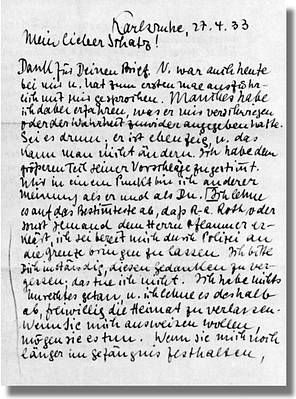 Karlsruhe, 27.4.33
Mein lieber Schatz!
Dank für Deinen Brief. N. war auch heute
bei mir u. hat zum ersten mal ausführ-
lich mit mir gesprochen. Manches habe
ich dabei erfahren, was er mir verschwiegen
oder der Wahrheit zuwider angegeben hatte.
Sei es drum; er ist eben feig, u. das
kann man nicht ändern. Ich habe dem
größeren Teil seiner Vorschläge zugestimmt.
Nur in einem Punkt bin ich anderer
meinung als er und als Du. Ich lehne
es auf das Bestimmteste ab, daß R.-a. Roth oder
sonst jemand dem Herrn Pflaumer er-
klärt, ich sei bereit mich durch Polizei an
die Grenze bringen zu lassen. Ich bitte
Dich inständig, diesen Gedanken zu ver-
gessen; das tue ich nicht. Ich habe nichts
Unrechtes getan, u. ich lehne es deshalb
ab, freiwillig die Heimat zu verlassen.
Wenn Sie mich ausweisen wollen,
mögen sie es tun. Wenn sie mich noch
länger im gefängnis festhalten,